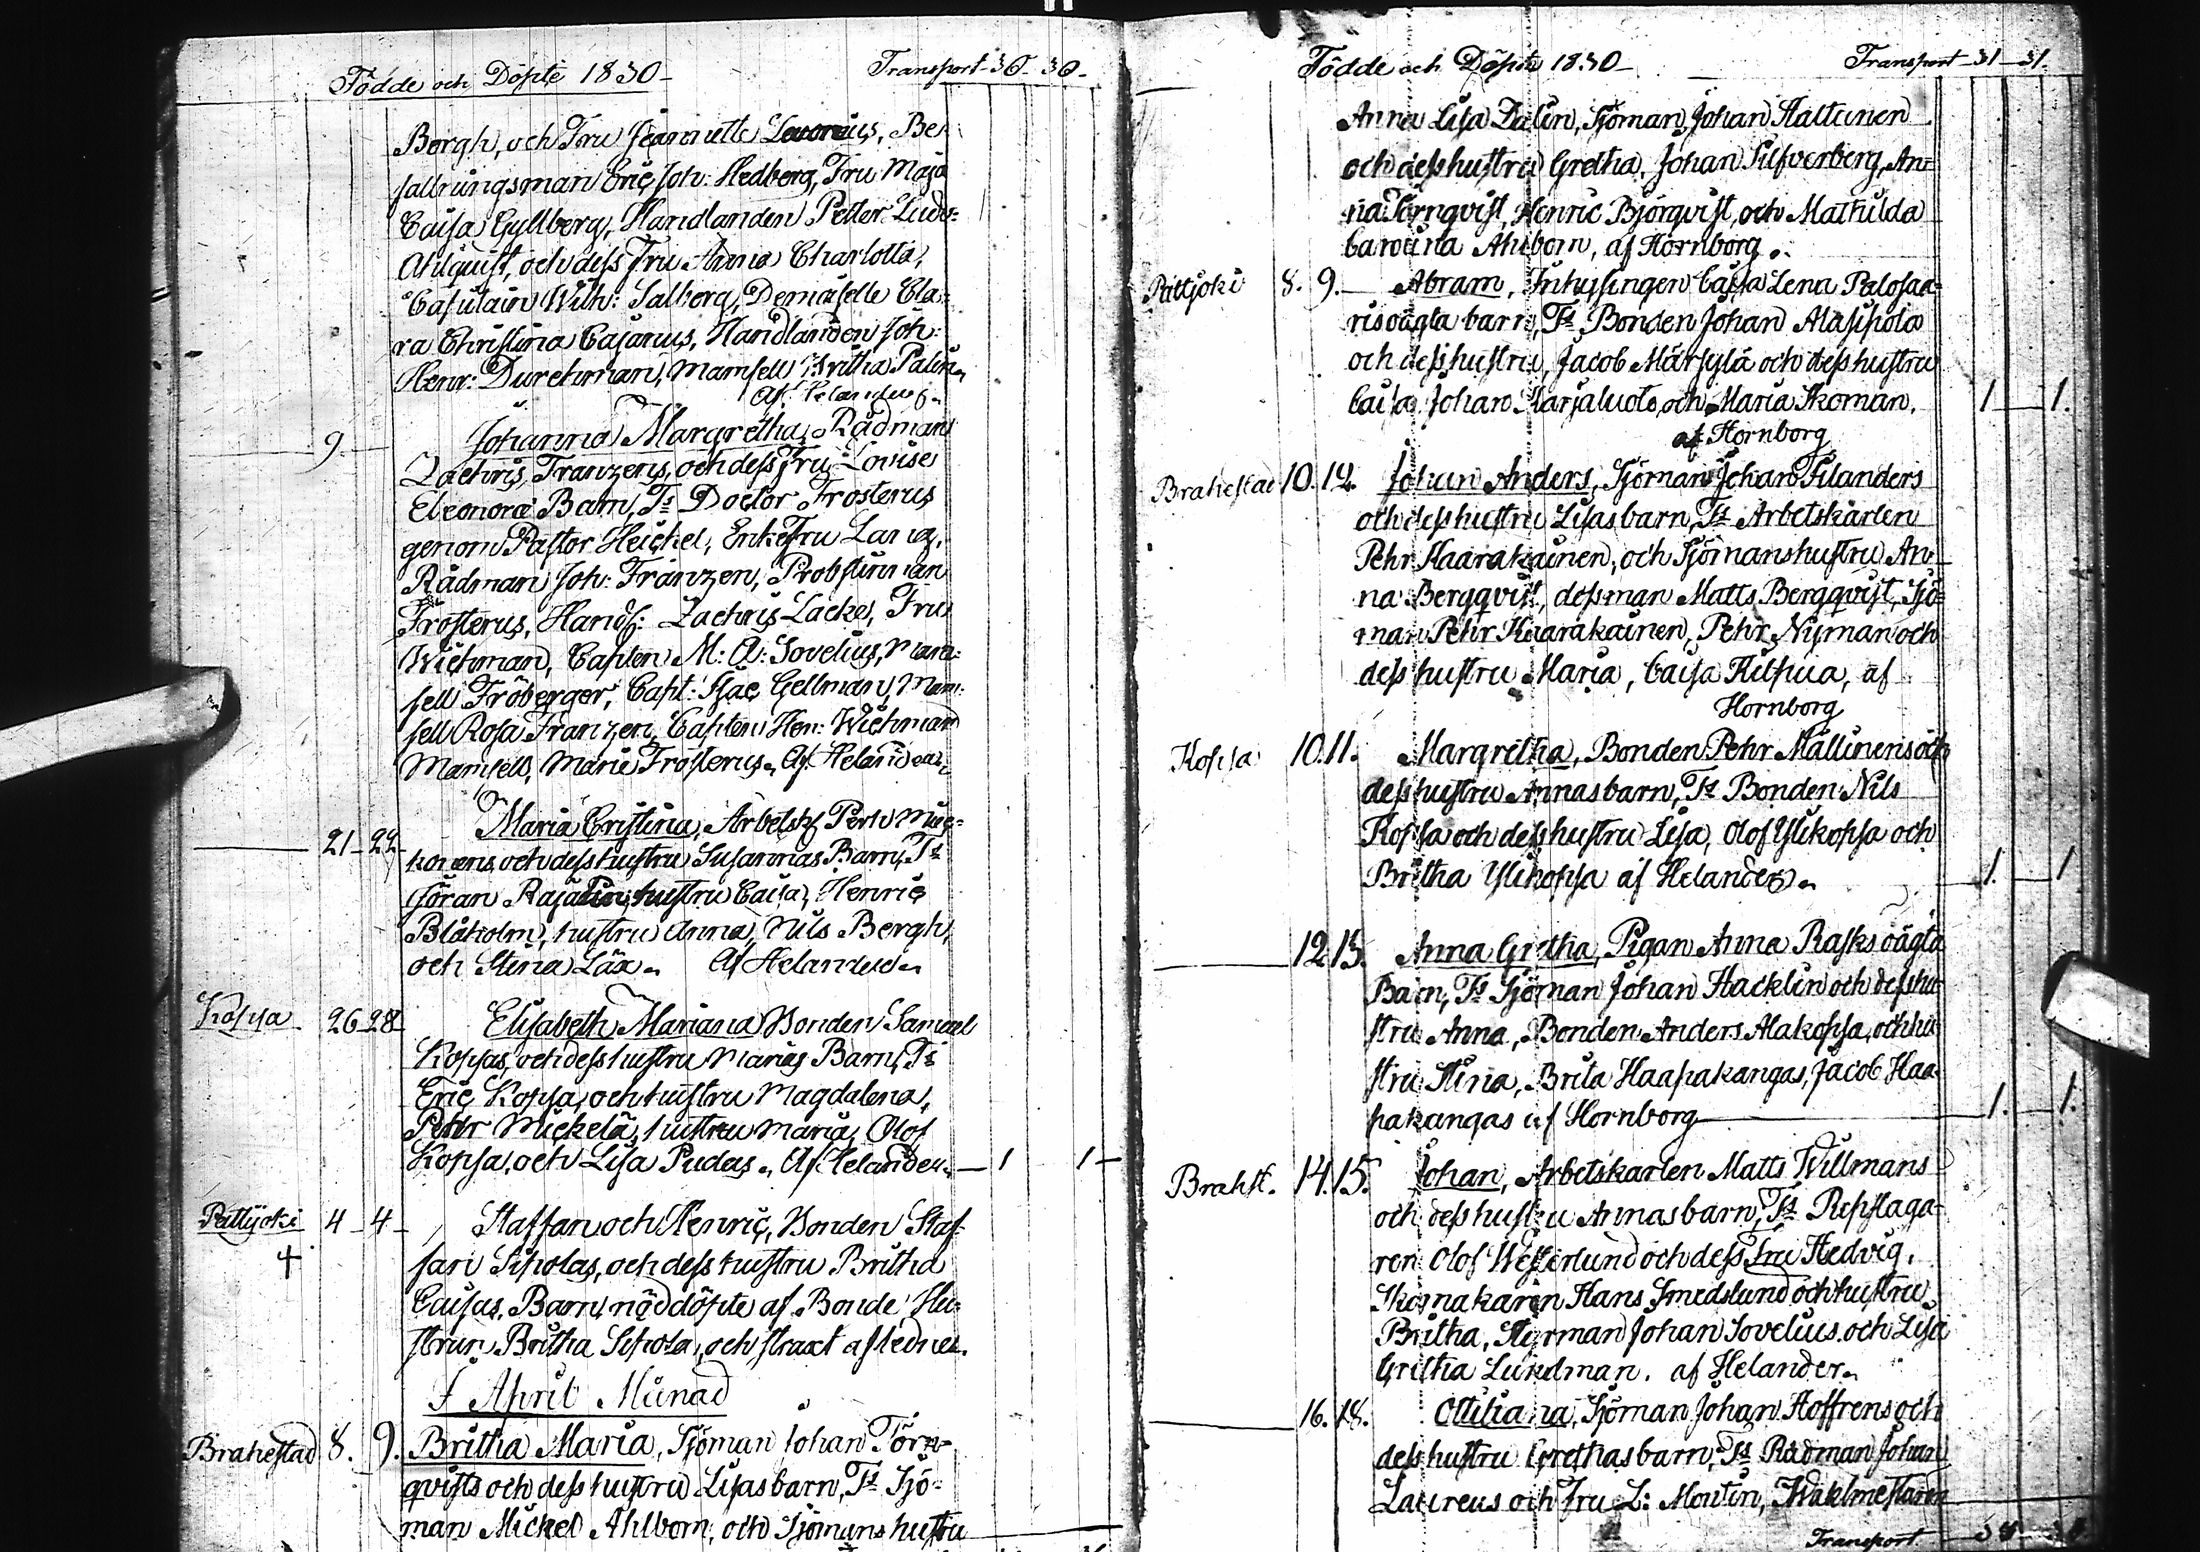 Födde och Döpte 1830 Transport 30 30
Bergh, och Fru Jeannette, Be-
fallningsman Eric Joh: Hedberg, Fru Maja
Caisa Gyllberg, Handlanden Petter Ludv:
Ahlquist, och dess Fru Anna Charlotta,
Capitain Wilh: Salberg, Demaiselle Cla-
ra Christina Cajanus, Handlanden Joh:
Henr: Durchman, Mamsell Britha Palin.
Af Helander.
9. Johanna Margretha, Rådmans
Zachris Franzens, och dess Fru Lovises
Eleonora Barn, Ts Doctor Frosterus
genom Pastor Heickel, EnkeFru Lang,
Rådman Joh: Franzen, Probstinnan
Frosterus, Handl: Zachris Lackes, Fru
Wichman, Capten M: A: Sovelius, Mam-
sell Fröberger, Capt: Isac Gellman, Mam-
sell Rosa Franzen, Capten Hen: Wichman
Mamsell, Marie Frosterus. Af Helander
21 22 Maria Cristina, Arbetsk Pehr
och dess hustru Susannas Barn, Ts
Göran Rajalin, hustru Caisa, Henric
Blåholm, hustru Anna, Nils Bergh,
och Stina Läx. Af Helander.
Kopsa 26 28 Elisabeth Mariana Bonden Samuel
Kopsas, och dess hustru Marias Barn, Ts
Eric Kopsa, och hustru Magdalena,
Pehr Mickelä, hustru Maria, Olof
Kopsa, och Lisa Pudas. Af Helander. 1 1
Pattijoki 4 4 Staffan och Henric, Bonden Staf-
+ fan Sipolas, och dess hustru Britha
Caisas, Barn, nöddöpte af Bonde Hu-
strun Britha Sipola, och straxt afledne.
I April Månad
Brahestad 8. 9. Britha Maria, Sjöman Johan Törn-
qvists och dess hustru Lisas barn, Ts Sjö-
man Mickel Ahlborn, och Sjömans hustru
Födde och Döpte 1830 Transport 31 31.
Anna Lisa Dalin, Sjöman Johan Haltunen
och dess hustru Gretha, Johan Silfverberg, An-
na Törnqvist, Henric Björqvist, och Mathilda
Carolina Ahlborn, af Hornborg.
Pattijoki 8. 9. Abram, Inhysingen Caisa Lena Palosaa-
ris oägta barn, Ts Bonden Johan Alasipola
och dess hustru, Jacob Märsylä och dess hustru
Caisa, Johan Marjaluoto, och Maria Skoman. 1 1.
af Hornborg
Brahestad 10. 12. Johan Anders, Sjöman Johan Silanders
och dess hustru Lisas barn, Ts Arbetskarlen
Pehr Haarakainen, och Sjömanshustru An-
na Bergqvist, dess man Matts Bergqvist, Sjö-
man Pehr Haarakainen, Pehr Nyman och
dess hustru Maria, Caisa Kilpua, af
Hornborg
Kopsa 10. 11. Margretha, Bonden Pehr Mällinens och
dess hustru Annas barn, Ts Bonden Nils
Kopsa och dess hustru Lisa, Olof Ylikopsa och
Britha Ylikopsa af Helander. 1. 1
12 15. Anna Gretha, Pigan Anna Rasks oägta
Barn, Ts Sjöman Johan Hacklin och dess hu-
stru Anna, Bonden Anders Alakopsa, och hu-
stru Stina, Brita Haapakangas, Jacob Haa-
pakangas af Hornborg 1. 1.
Brahst. 14. 15. Johan, Arbetskarlen Matts Willmans
och dess hustru Annas barn, Ts Repslaga-
ren Olof Westerlund och dess fru Hedvig,
Skomakaren Hans Smedslund och hustru
Britha, Styrman Johan Sovelius och Lisa
Gretha Lundman. af Helander.
16. 18. Ottiliana, Sjöman Johan Hoffrens och
dess hustru Grethas barn, Ts Rådman Johan
Laureus och Fru L: Montin, Waktmestaren
Transport